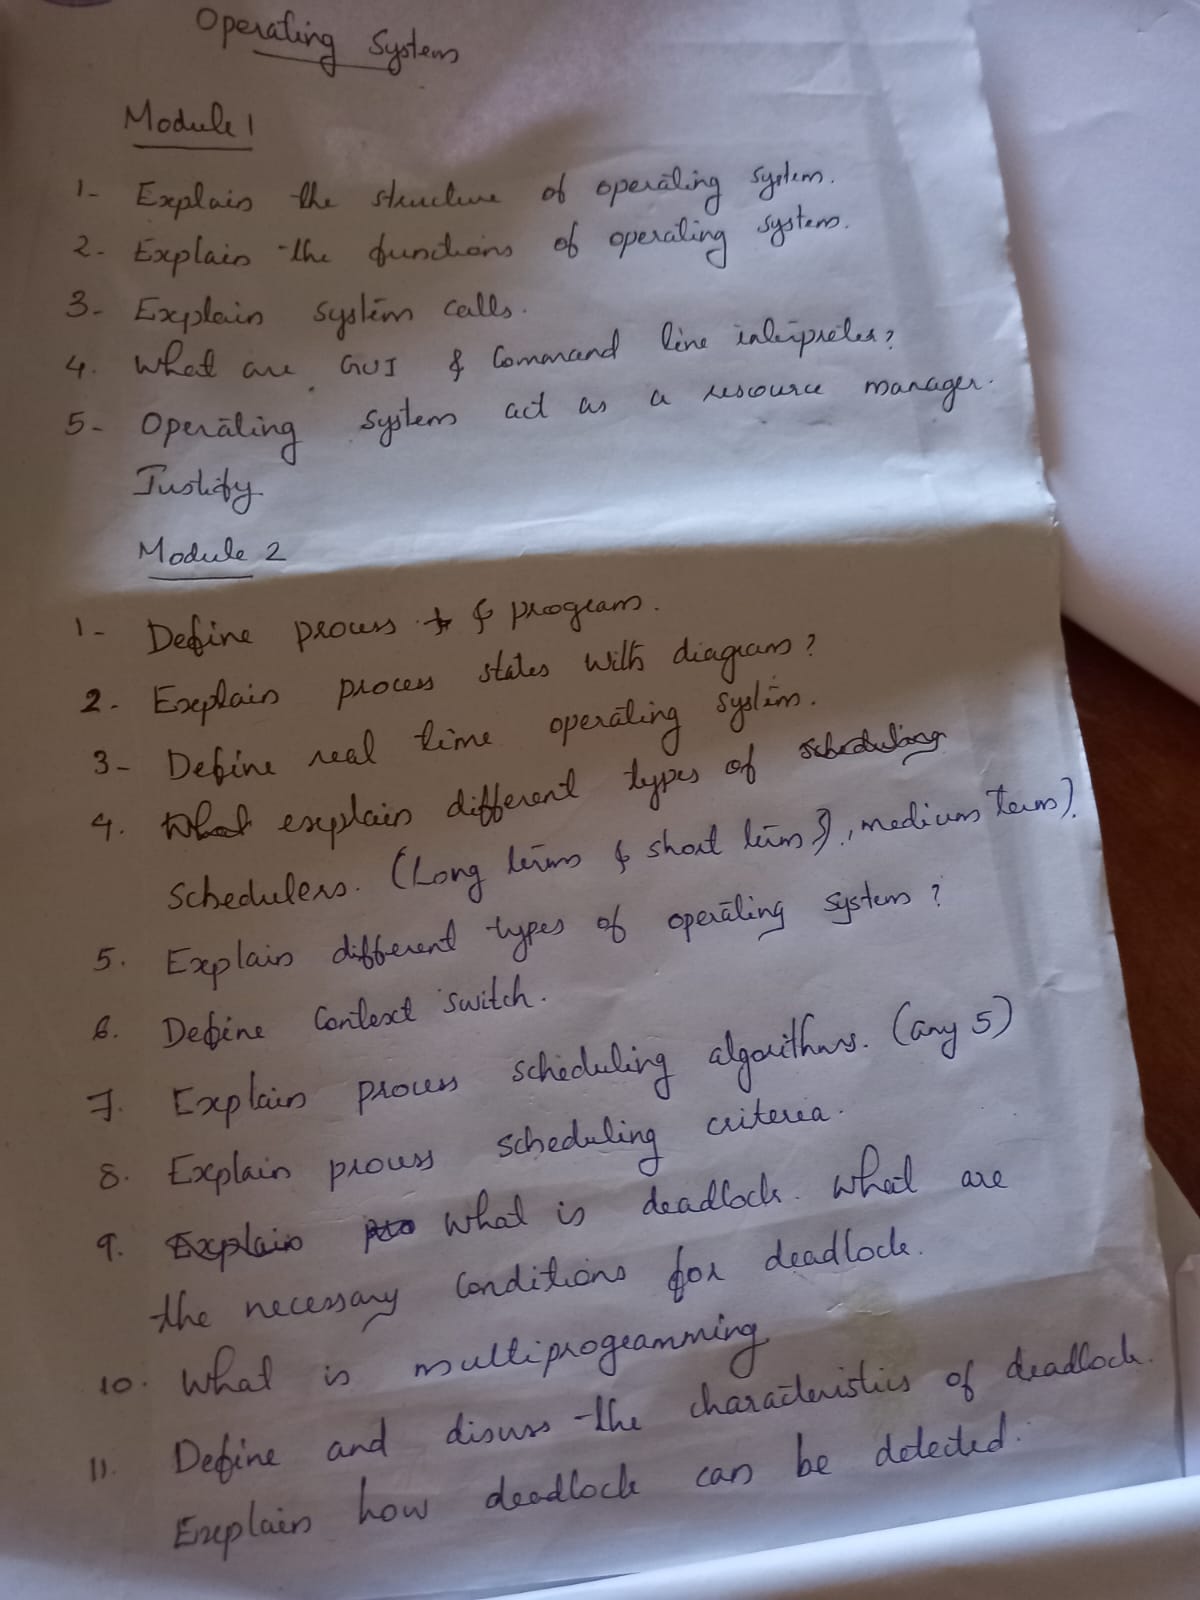 Operating System
Module 1
1- Explain the structure of operating system.
2- Explain the functions of operating system.
3- Explain system calls.
4. What are GUI & Command line interpreter?
5- Operating system act as a resource manager.
Justify.
Module 2
1- Define process & program.
2. Explain process states with diagram?
3- Define real time operating system.
4. What explain different types of scheduling
schedulers. (Long term & short term), medium term).
5. Explain different types of operating system?
6. Define Context switch.
7. Explain process scheduling algorithms. (any 5)
8. Explain process scheduling criteria.
9. Explain pro What is deadlock. What are
the necessary conditions for deadlock.
10. What is multiprogramming
11. Define and discuss the characteristics of deadlock.
Explain how deadlock can be detected.